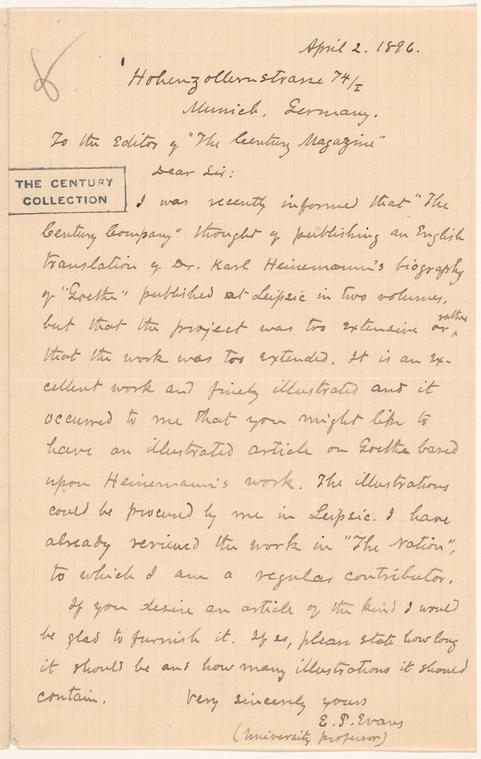 April 2. 1896.
Hohenzollernstrasse 74/I
Munich, Germany.
To the Editor of "The Century Magazine"
Dear Sir:
THE CENTURY
COLLECTION
I was recently informed that "The
Century Company" thought of publishing an English
translation of Dr. Karl Heinemann's biography
of "Goethe" published at Leipsic in two volumes,
but that the project was too extensive or rather
that the work was too extended. It is an ex-
cellent work and finely illustrated and it
occurred to me that you might like to
have an illustrated article on Goethe based
upon Heinemann's work. The illustrations
could be procured by me in Leipsic. I have
already reviewed the work in "The Nation",
to which I am a regular contributor.
If you desire an article of the kind I would
be glad to furnish it. If so, please state how long
it should be and how many illustrations it should
contain. Very sincerely yours
E. P. Evans
(University professor)